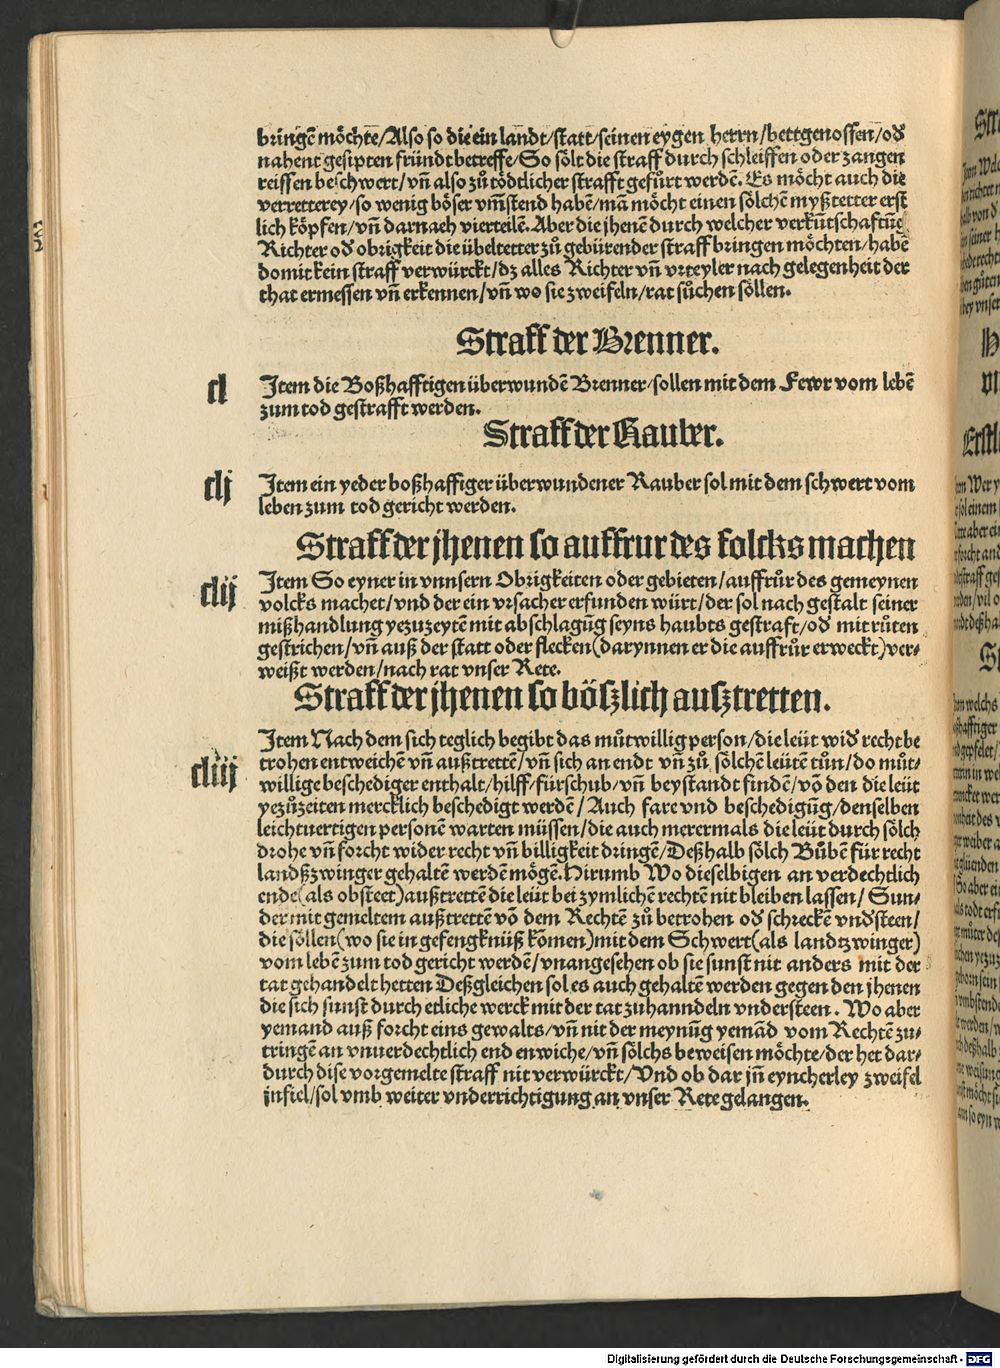 bringē möchte/Also so die ein landt/statt/seinen eygen herrn/bettgenossen/od
nahent gesipten fründt betreffe/So sölt die straff durch schleiffen oder zangen
reissen beschwert/vñ also zů tödtlicher strafft gefůrt werdē. Es möcht auch die
verretterey/so wenig böser vm̄stend habē/mā möcht einen sölchē myßtetter erst
lich köpfen/vñ darnach vierteilē. Aber die jhenē durch welcher verkūtschaftūg
Richter od obrigkeit die übeltetter zů gebürender straff bringen möchten/habē
domit kein straff verwürckt/dz alles Richter vñ vrteyler nach gelegenheit der
that ermessen vñ erkennen/vñ wo sie zweifeln/rat sůchen söllen.
Straff der Brenner.
cl Item die Boßhafftigen überwundē Brenner/sollen mit dem Fewr vom lebē
zum tod gestrafft werden.
Straff der Rauber.
clj Item ein yeder boßhaffiger überwundener Rauber sol mit dem schwert vom
leben zum tod gericht werden.
Straff der jhenen so auffrur des folcks machen
clij Item So eyner in vnnsern Obrigkeiten oder gebieten/auffrůr des gemeynen
volcks machet/vnd der ein vrsacher erfunden würt/der sol nach gestalt seiner
mißhandlung yezuzeytē mit abschlagūg seyns haubts gestraft/od mit růten
gestrichen/vñ auß der statt oder flecken(darynnen er die auffrůr erweckt)ver⸗
weißt werden/nach rat vnser Rete.
Straff der jhenen so bößlich außtretten.
cliij Item Nach dem sich teglich begibt das můtwillig person/die leüt wid recht be
trohen entweichē vñ außtrettē/vñ sich an endt vñ zů sölchē leütē tůn/do můt⸗
willige beschediger enthalt/hilff/fürschub/vñ beystandt findē/vō den die leüt
yezůzeiten mercklich beschedigt werdē/Auch fare vnd beschedigūg/denselben
leichtuertigen personē warten müssen/die auch merermals die leüt durch sölch
drohe vñ forcht wider recht vñ billigkeit dringē/Deßhalb sölch Bůbē für recht
landßzwinger gehaltē werdē mögē. Hirumb Wo dieselbigen an verdechtlich
ende(als obsteet)außtrettē die leüt bei zymlichē rechtē nit bleiben lassen/Sun⸗
der mit gemeltem außtrettē vō dem Rechtē zů betrohen od schreckē vndsteen/
die söllen(wo sie in gefengknüß kōmen)mit dem Schwert(als landtzwinger)
vom lebē zum tod gericht werdē/vnangesehen ob sie sunst nit anders mit der
tat gehandelt hetten Deßgleichen sol es auch gehaltē werden gegen den jhenen
die sich sunst durch etliche werck mit der tat zuhanndeln vndersteen. Wo aber
yemand auß forcht eins gewalts/vñ nit der meynūg yemād vom Rechtē zu⸗
tringē an vnuerdechtlich end enwiche/vñ sölchs beweisen möchte/der het dar⸗
durch dise vorgemelte straff nit verwürckt/Vnd ob dar jñ eyncherley zweifel
jnfiel/sol vmb weiter vnderrichtigung an vnser Rete gelangen.
Digitalisierung gefördert durch die Deutsche Forschungsgemeinschaft - DFG